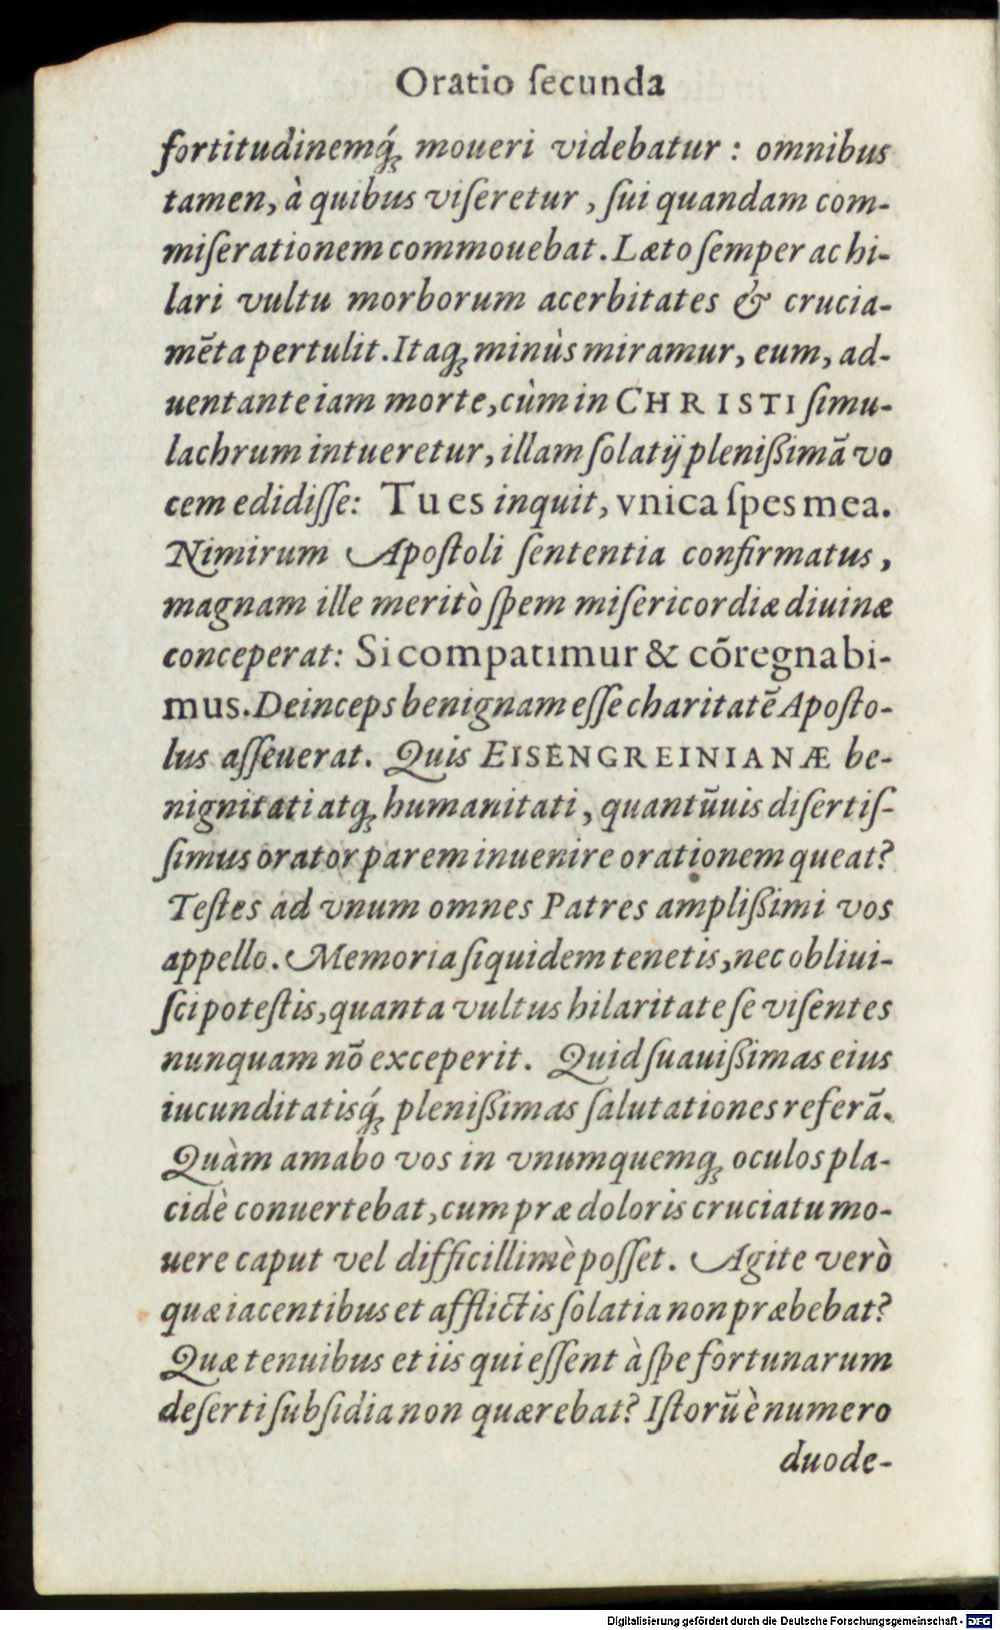 Oratio ſecunda
fortitudinemq́ꝫ moueri videbatur : omnibus
tamen, à quibus viſeretur , ſui quandam com-
miſerationem commouebat . Læto ſemper ac hi-
lari vultu morborum acerbitates & crucia-
mẽta pertulit. Itaqꝫ minùs miramur, eum, ad-
uentante iam morte, cùm in CHRISTI ſimu-
lachrum intueretur, illam ſolatij pleniſſimã vo
cem edidiſſe: Tu es inquit, vnica ſpes mea.
Nimirum Apoſtoli ſententia confirmatus ,
magnam ille meritò ſpem miſericordiæ diuinæ
conceperat: Si compatimur & cõregnabi-
mus. Deinceps benignam eſſe charitatẽ Apoſto-
lus aſſeuerat. Quis EISENGREINIANÆ be-
nignitati atqꝫ humanitati , quantũuis diſertiſ-
ſimus orator parem inuenire orationem queat?
Teſtes ad vnum omnes Patres ampliſſimi vos
appello. Memoria ſiquidem tenetis, nec obliui-
ſci poteſtis, quanta vultus hilaritate ſe viſentes
nunquam nõ exceperit. Quid ſuauiſſimas eius
iucunditatisq́ꝫ pleniſſimas ſalutationes referã.
Quàm amabo vos in vnumquemqꝫ oculos pla-
cidè conuertebat, cum præ doloris cruciatu mo-
uere caput vel difficillimè poſſet. Agite verò
quæ iacentibus et afflictis ſolatia non præbebat?
Quæ tenuibus et iis qui eſſent à ſpe fortunarum
deſerti ſubſidia non quærebat? Iſtorũ è numero
duode-
Digitalisierung gefördert durch die Deutsche Forschungsgemeinschaft - DFG